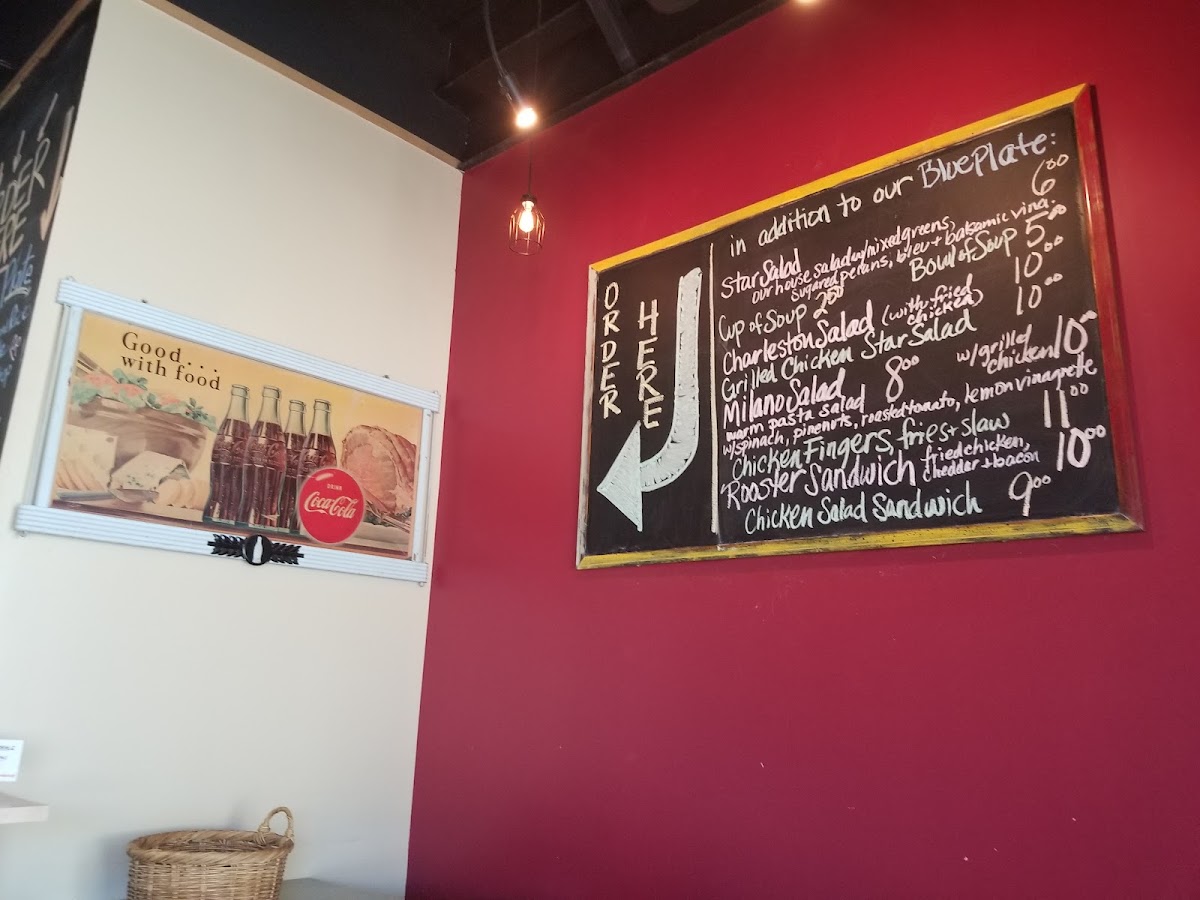 Good...
with food
DRINK
Coca-Cola
ORDER
HERE
in addition to our BluePlate:
Star Salad 6.00
our house salad w/mixed greens,
sugared pecans, bleu + balsamic vina.
Cup of Soup 2.50 Bowl of Soup 5.00
Charleston Salad (with fried chicken) 10.00
Grilled Chicken Star Salad 10.00
Milano Salad 8.00 w/grilled chicken 10.00
warm pasta salad
w/spinach, pinenuts, roasted tomato, lemon vinagrette
Chicken Fingers, fries + slaw 11.00
"Rooster Sandwich fried chicken, cheddar + bacon 10.00
Chicken Salad Sandwich 9.00